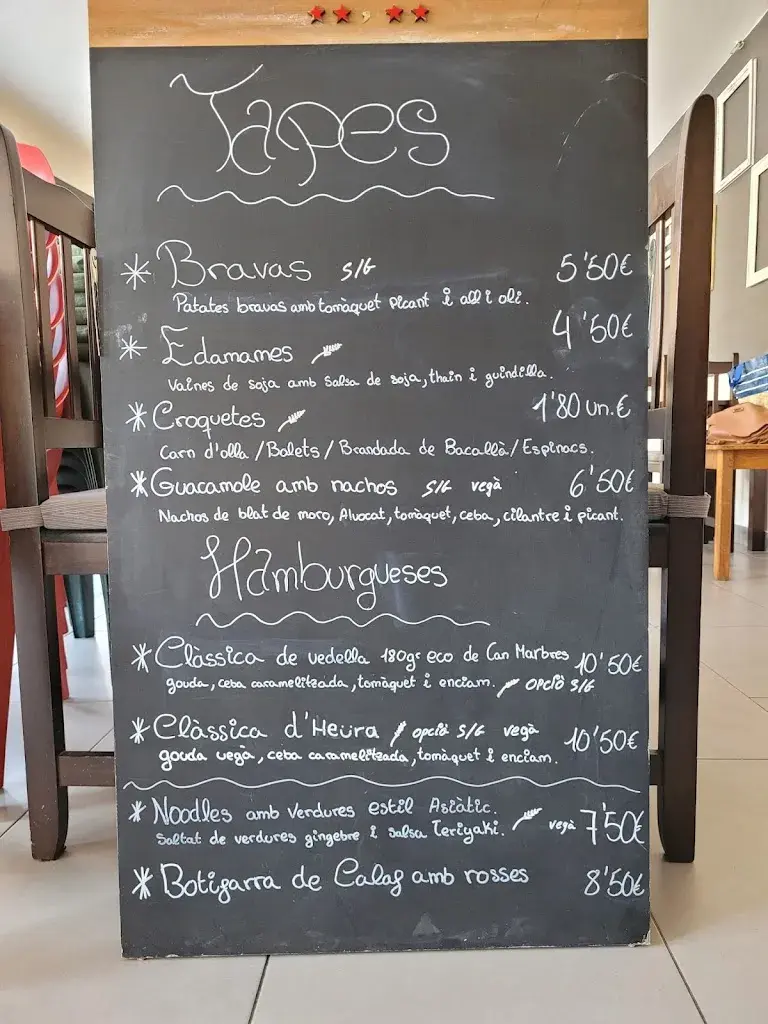 Tapes
* Bravas S/G 5'50€
Patates bravas amb tomàquet picant i all i oli.
* Edamames 4'50€
Vaines de soja amb salsa de soja, thain i guindilla.
* Croquetes 1'80 un.€
Carn d'olla / Bolets / Brandada de Bacallà / Espinacs.
* Guacamole amb nachos S/G vegà 6'50€
Nachos de blat de moro, Alvocat, tomàquet, ceba, cilantre i picant.
Hamburgueses
* Clàssica de vedella 180gr eco de Can Marbres 10'50€
gouda, ceba caramelitzada, tomàquet i enciam. opció S/G
* Clàssica d'Heura opció S/G vegà 10'50€
gouda vegà, ceba caramelitzada, tomàquet i enciam.
* Noodles amb verdures estil Asiàtic. vegà 7'50€
Saltat de verdures gingebre i salsa Teriyaki.
* Botifarra de Calaf amb rosses 8'50€